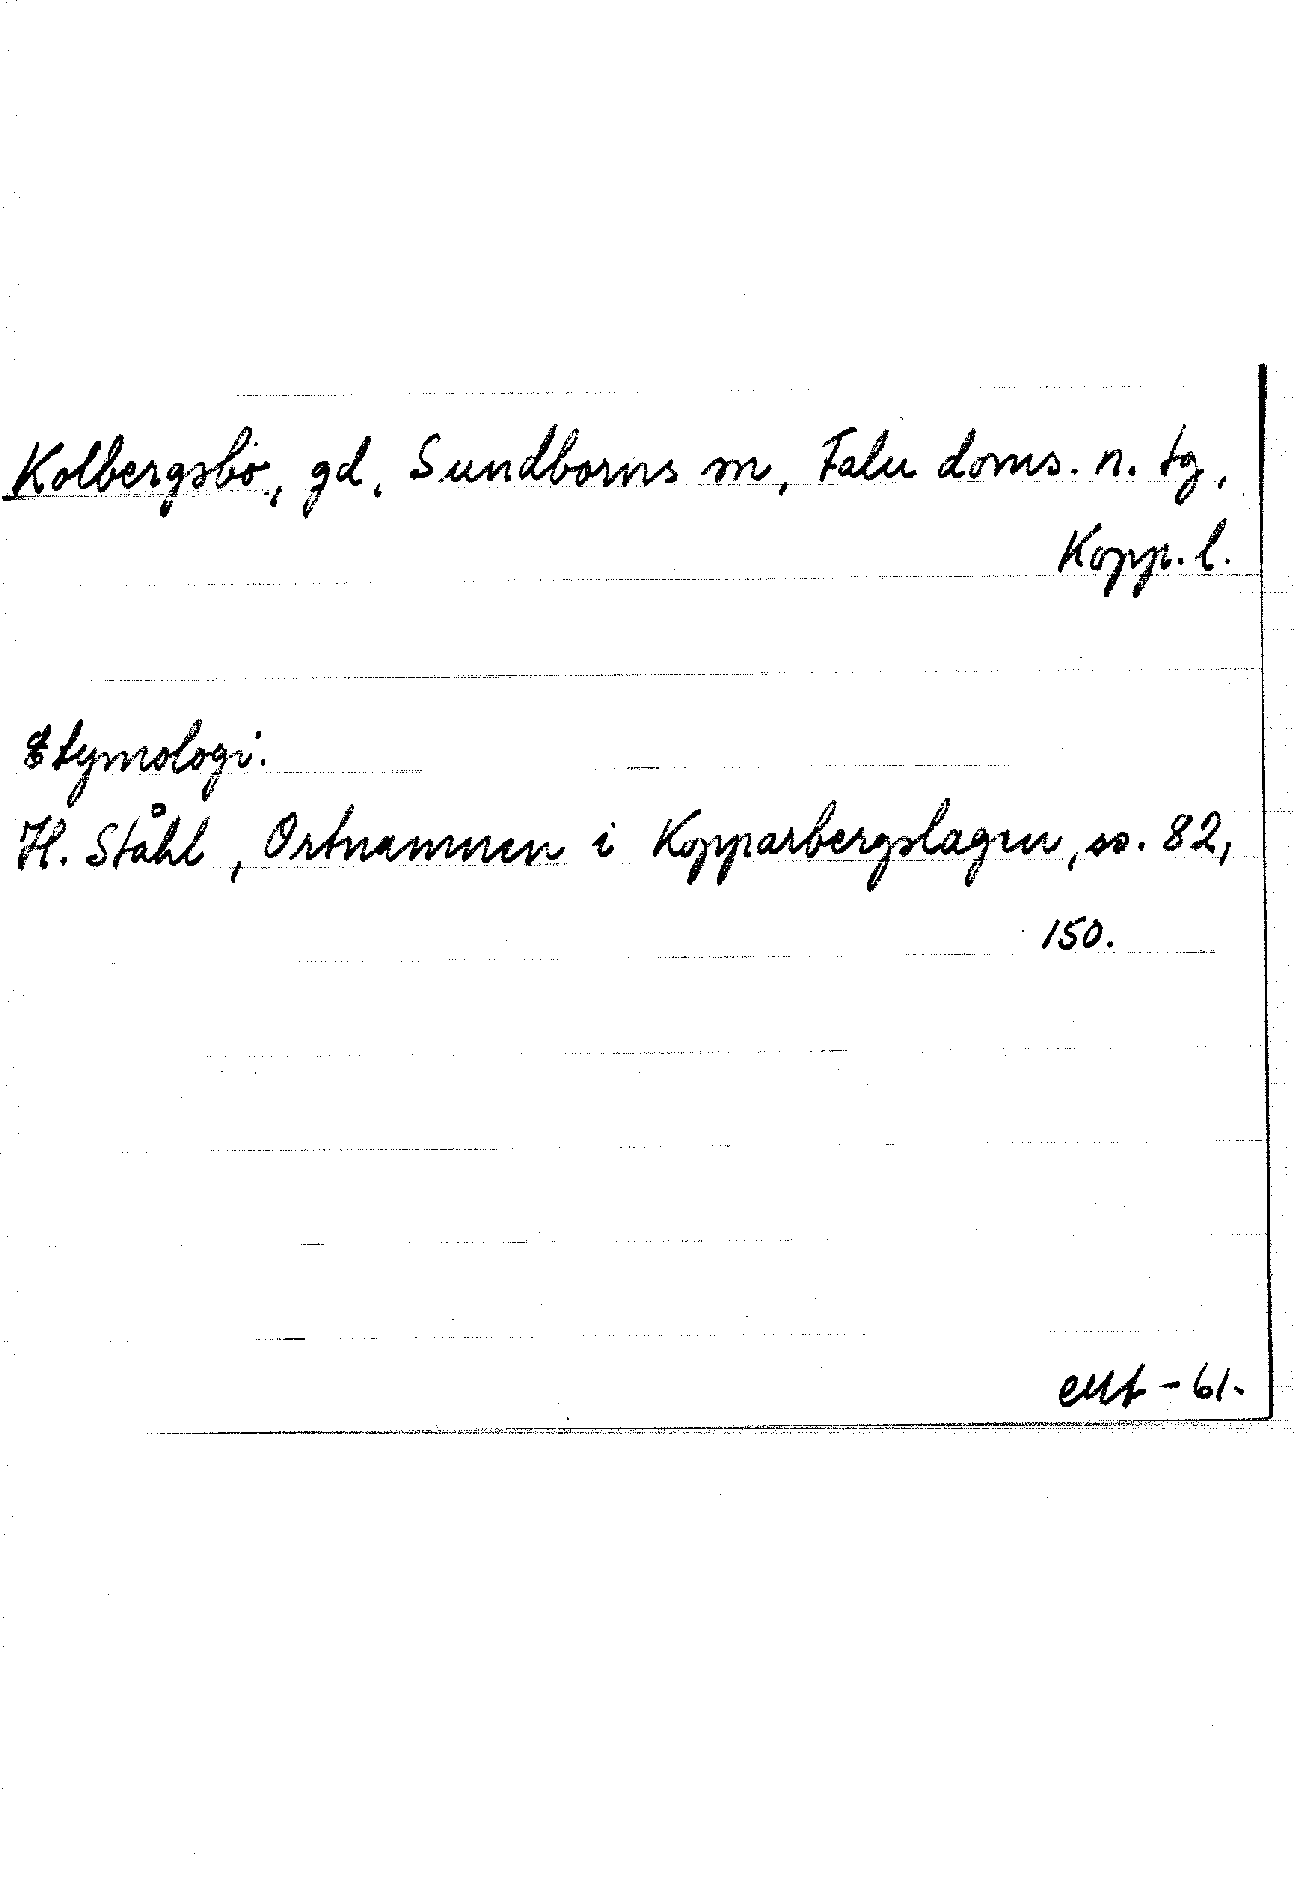 Kolbergsbo, gd, Sundborns sn, Falu doms. n. tg,
Kopp. l.
Etymologi.
H. Ståhl, Ortnamnen i Kopparbergslagen, ss. 82,
150.
-61.